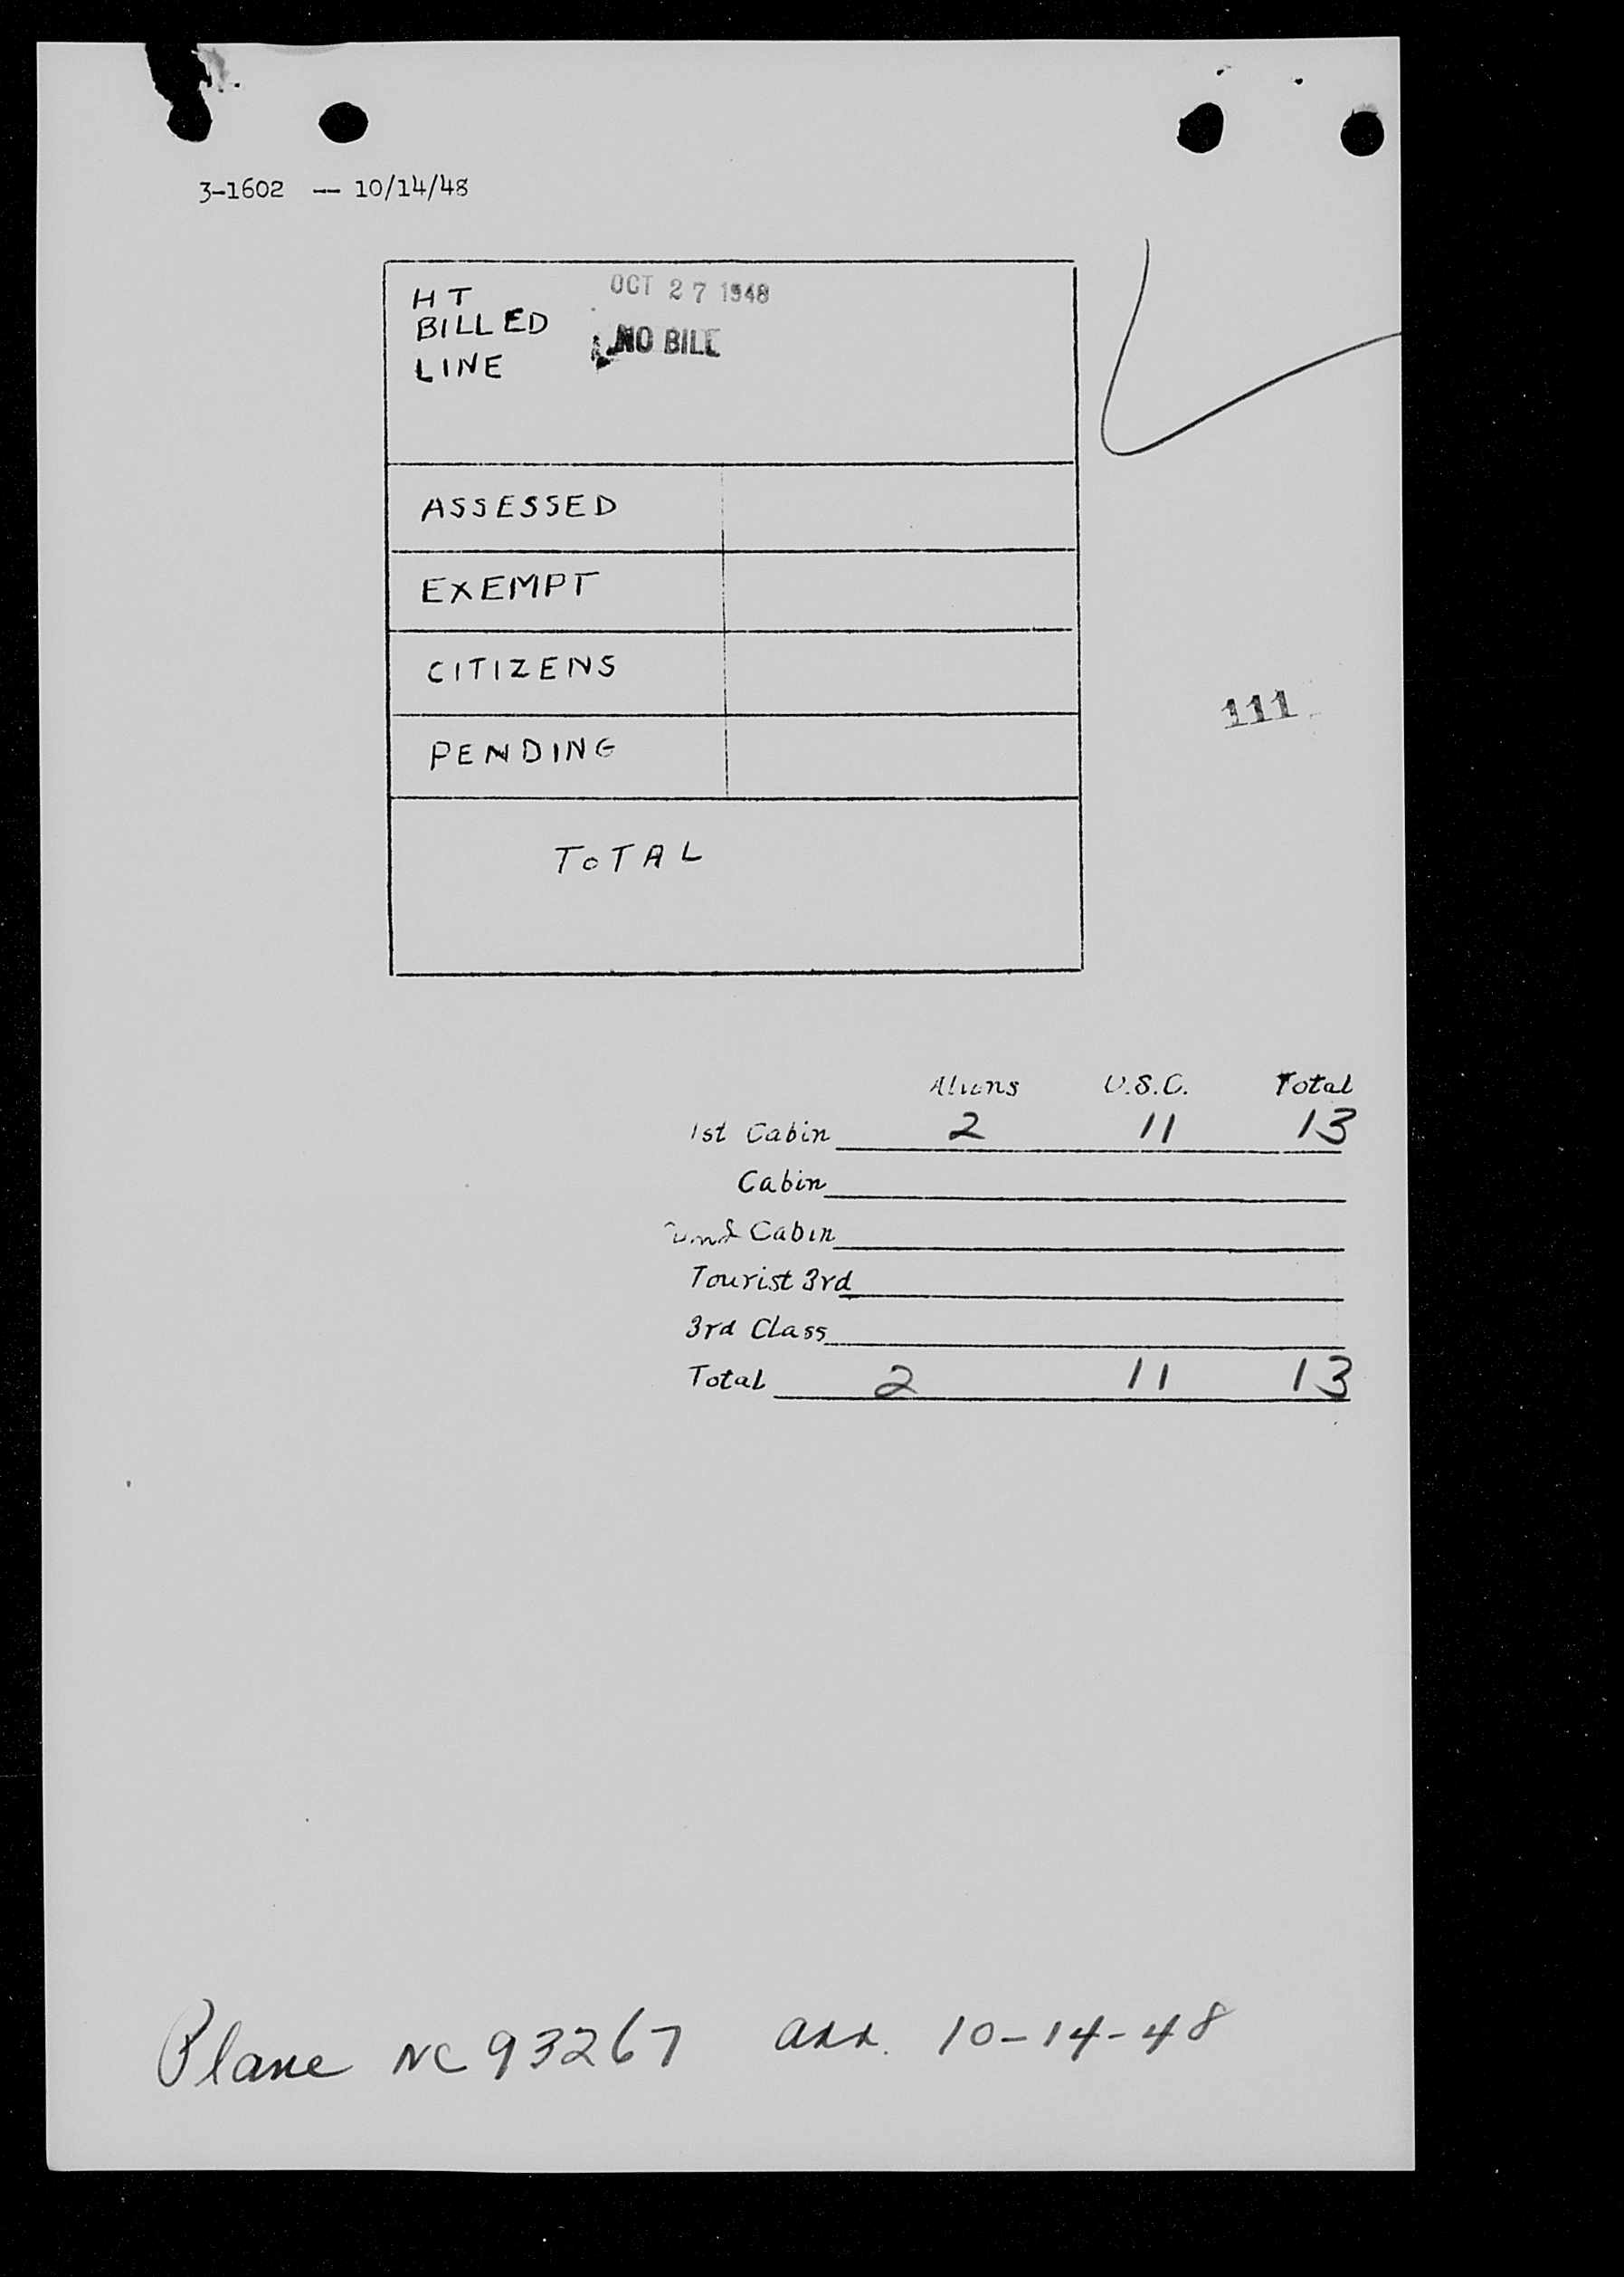 3-1602 -- 10/14/48
HT OCT 27 1948
BILLED NO BILL
LINE
ASSESSED
EXEMPT
CITIZENS
PENDING
111
TOTAL
Aliens U.S.C. Total
1st Cabin 2 11 13
Cabin
Cabin
Tourist 3rd
3rd Class
Total 2 11 13
Plane NC 93267 arr. 10-14-48